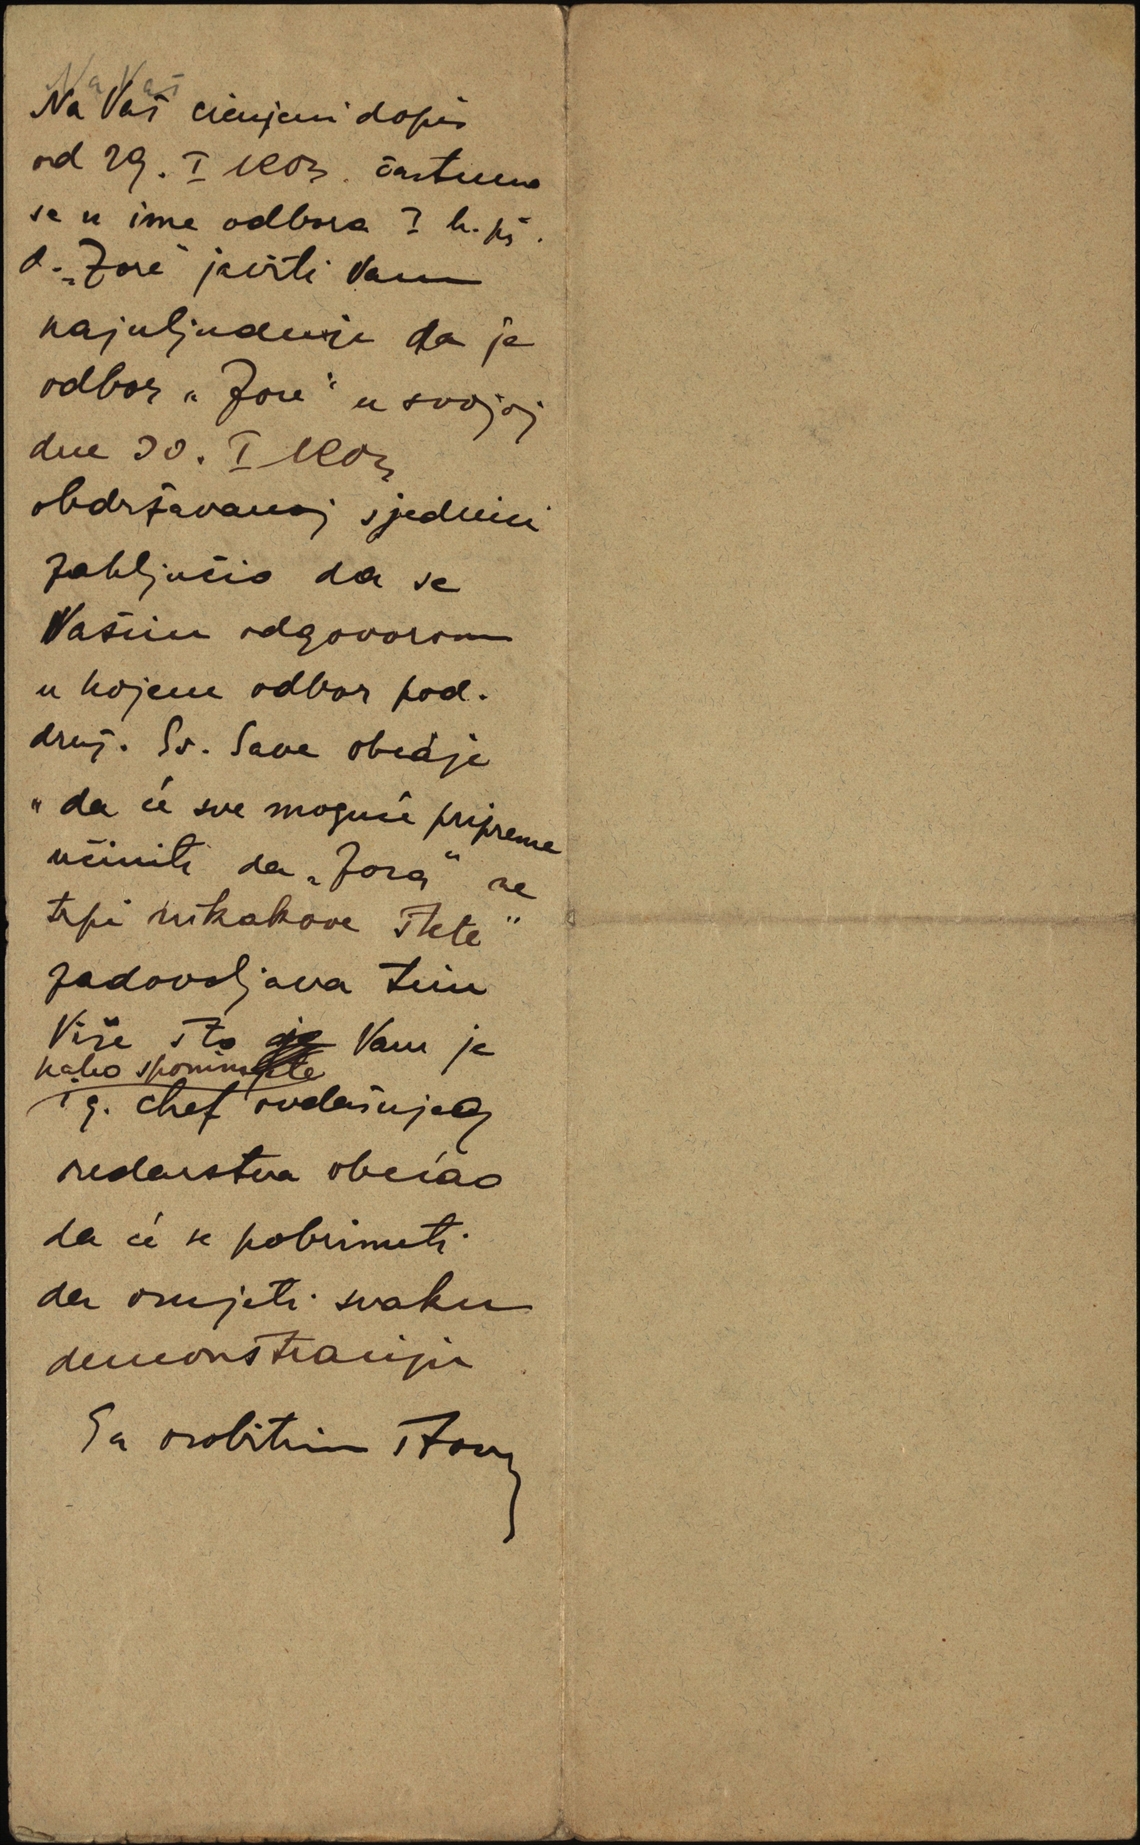 Na Vaš
Na Vaš cienjeni dopis
od 29. I častimo
se u ime odbora I h. pj.
d. „Zore“ javiti Vam
najuljudnije da je
odbor „Zore“ u svojoj
dne 30. I
obdržavanoj sjednici
zaključio da se
Vašim odgovorom
u kojem odbor pod.
druž. Sv. Save obećaje
„da će sve moguće pripreme
učiniti da „Zora“ ne
trpi nikakove štete“
zadovoljava tim
više što je Vam je
kako spominjete
i g. chef ovdašnjeg
redarstva obećao
da će se pobrinuti
da osujeti svaku
demonstraciju
Sa osobitim štov